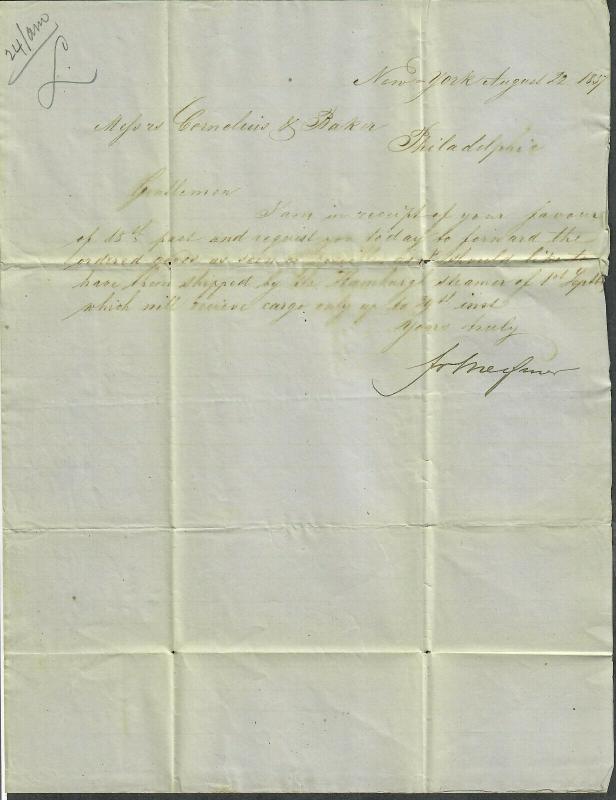 24/am
New-York August 22 1857
Messrs Cornelius & Baker
Philadelphia
Gentlemen
I am in receipt of your favour
of 18th past and request you today to forward the
ordered goods as soon as possible as I should like to
have them shipped by the Hamburgh steamer of 1st Septbr
which will recieve cargo only up to 29st inst
Yours truly